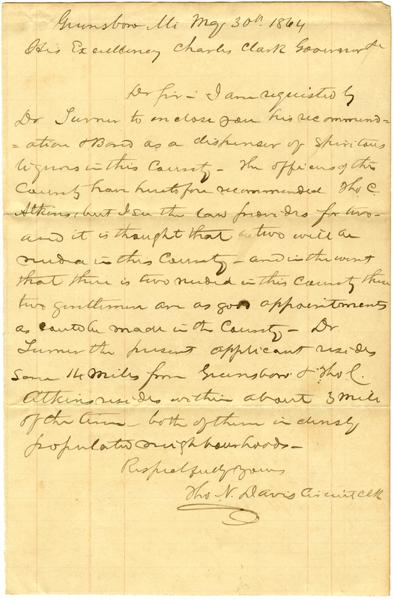 Greensboro Mi May 30th 1864
His Excellency Charles Clark Governor &c
Dr Sir - I am requested by
Dr Turner to enclose you his recommend-
-ation & Bond as a dispenser of Spiritous
liquors in this County - The officers of the
County have heretofore recommended Tho C.
Atkins, but I see the law provides for two -
and it is thought that two will be
needed in this County - and in the event
that there is two needed in this County these
two gentlemen are as good appointments
as can be made in the County - Dr
Turner the present applicant resides
some 14 miles from Greensboro & Tho C.
Atkins resides within about 3 mile
of the town - both of them in densly
populated neighbourhoods -
Respectfully yours
Tho. N. Davis Circuit Clk